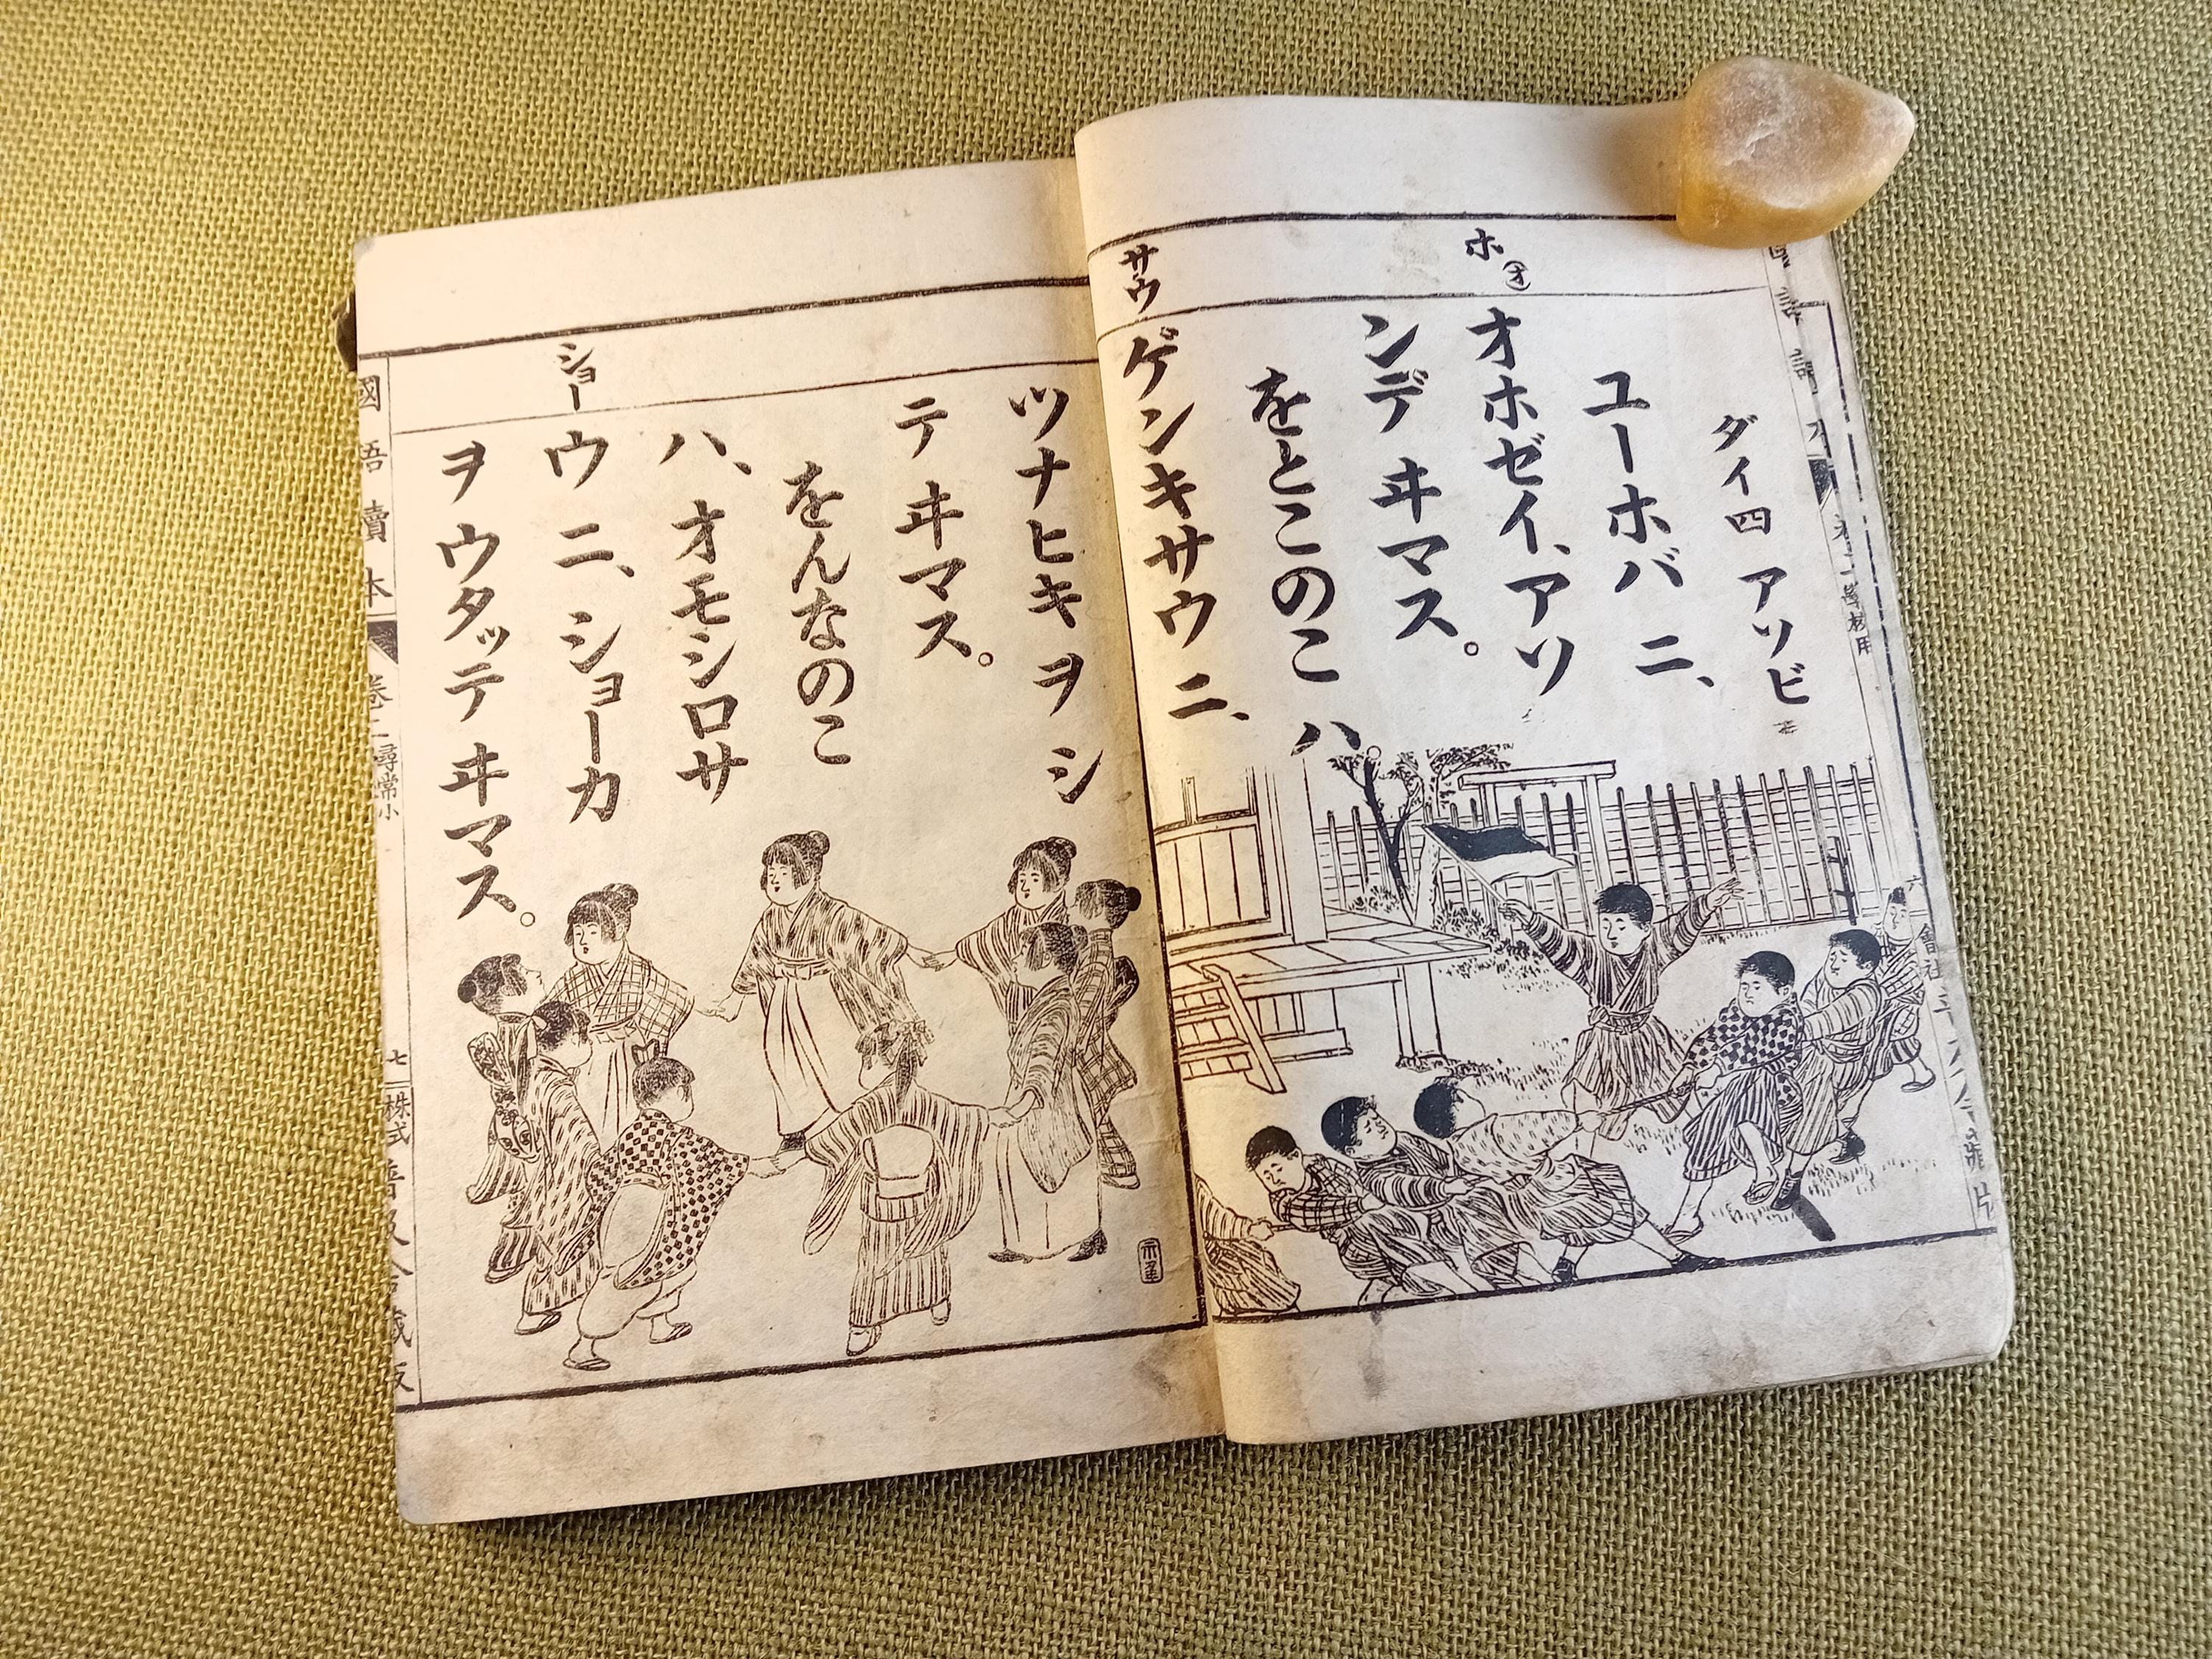 ホ
オ
サウ
ダイ四 アソビ
ユーホバ ニ、
オホゼイ、アソ
ンデ ヰマス。
をとこのこ ハ、
ゲンキサウ ニ、
ショー
ツナヒキ ヲ シ
テ ヰマス。
をんなのこ
ハ、オモシロサ
ウ ニ、ショーカ
ヲ ウタッテ ヰマス。
國語讀本 卷二 尋常小
七 株式